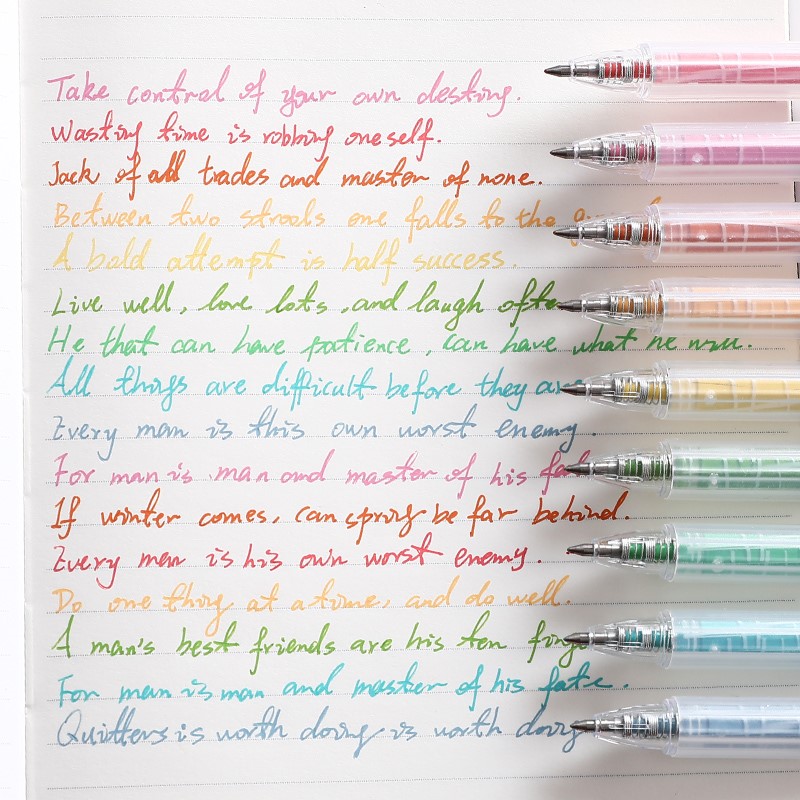 Take control of your own destiny.
Wasting time is robbing oneself.
Jack of all trades and master of none.
Between two strools one falls to the
A bold attempt is half success.
Live well, love lots, and laugh ofte
He that can have patience, can have what he will.
All things are difficult before they are
Every man is this own worst enemy.
For man is man and master of his fat
If winter comes, can spring be far behind.
Every man is his own worst enemy.
Do one thing at a time, and do well.
A man's best friends are his ten finge
For man is man and master of his fate.
Quitters is worth doing is worth doing